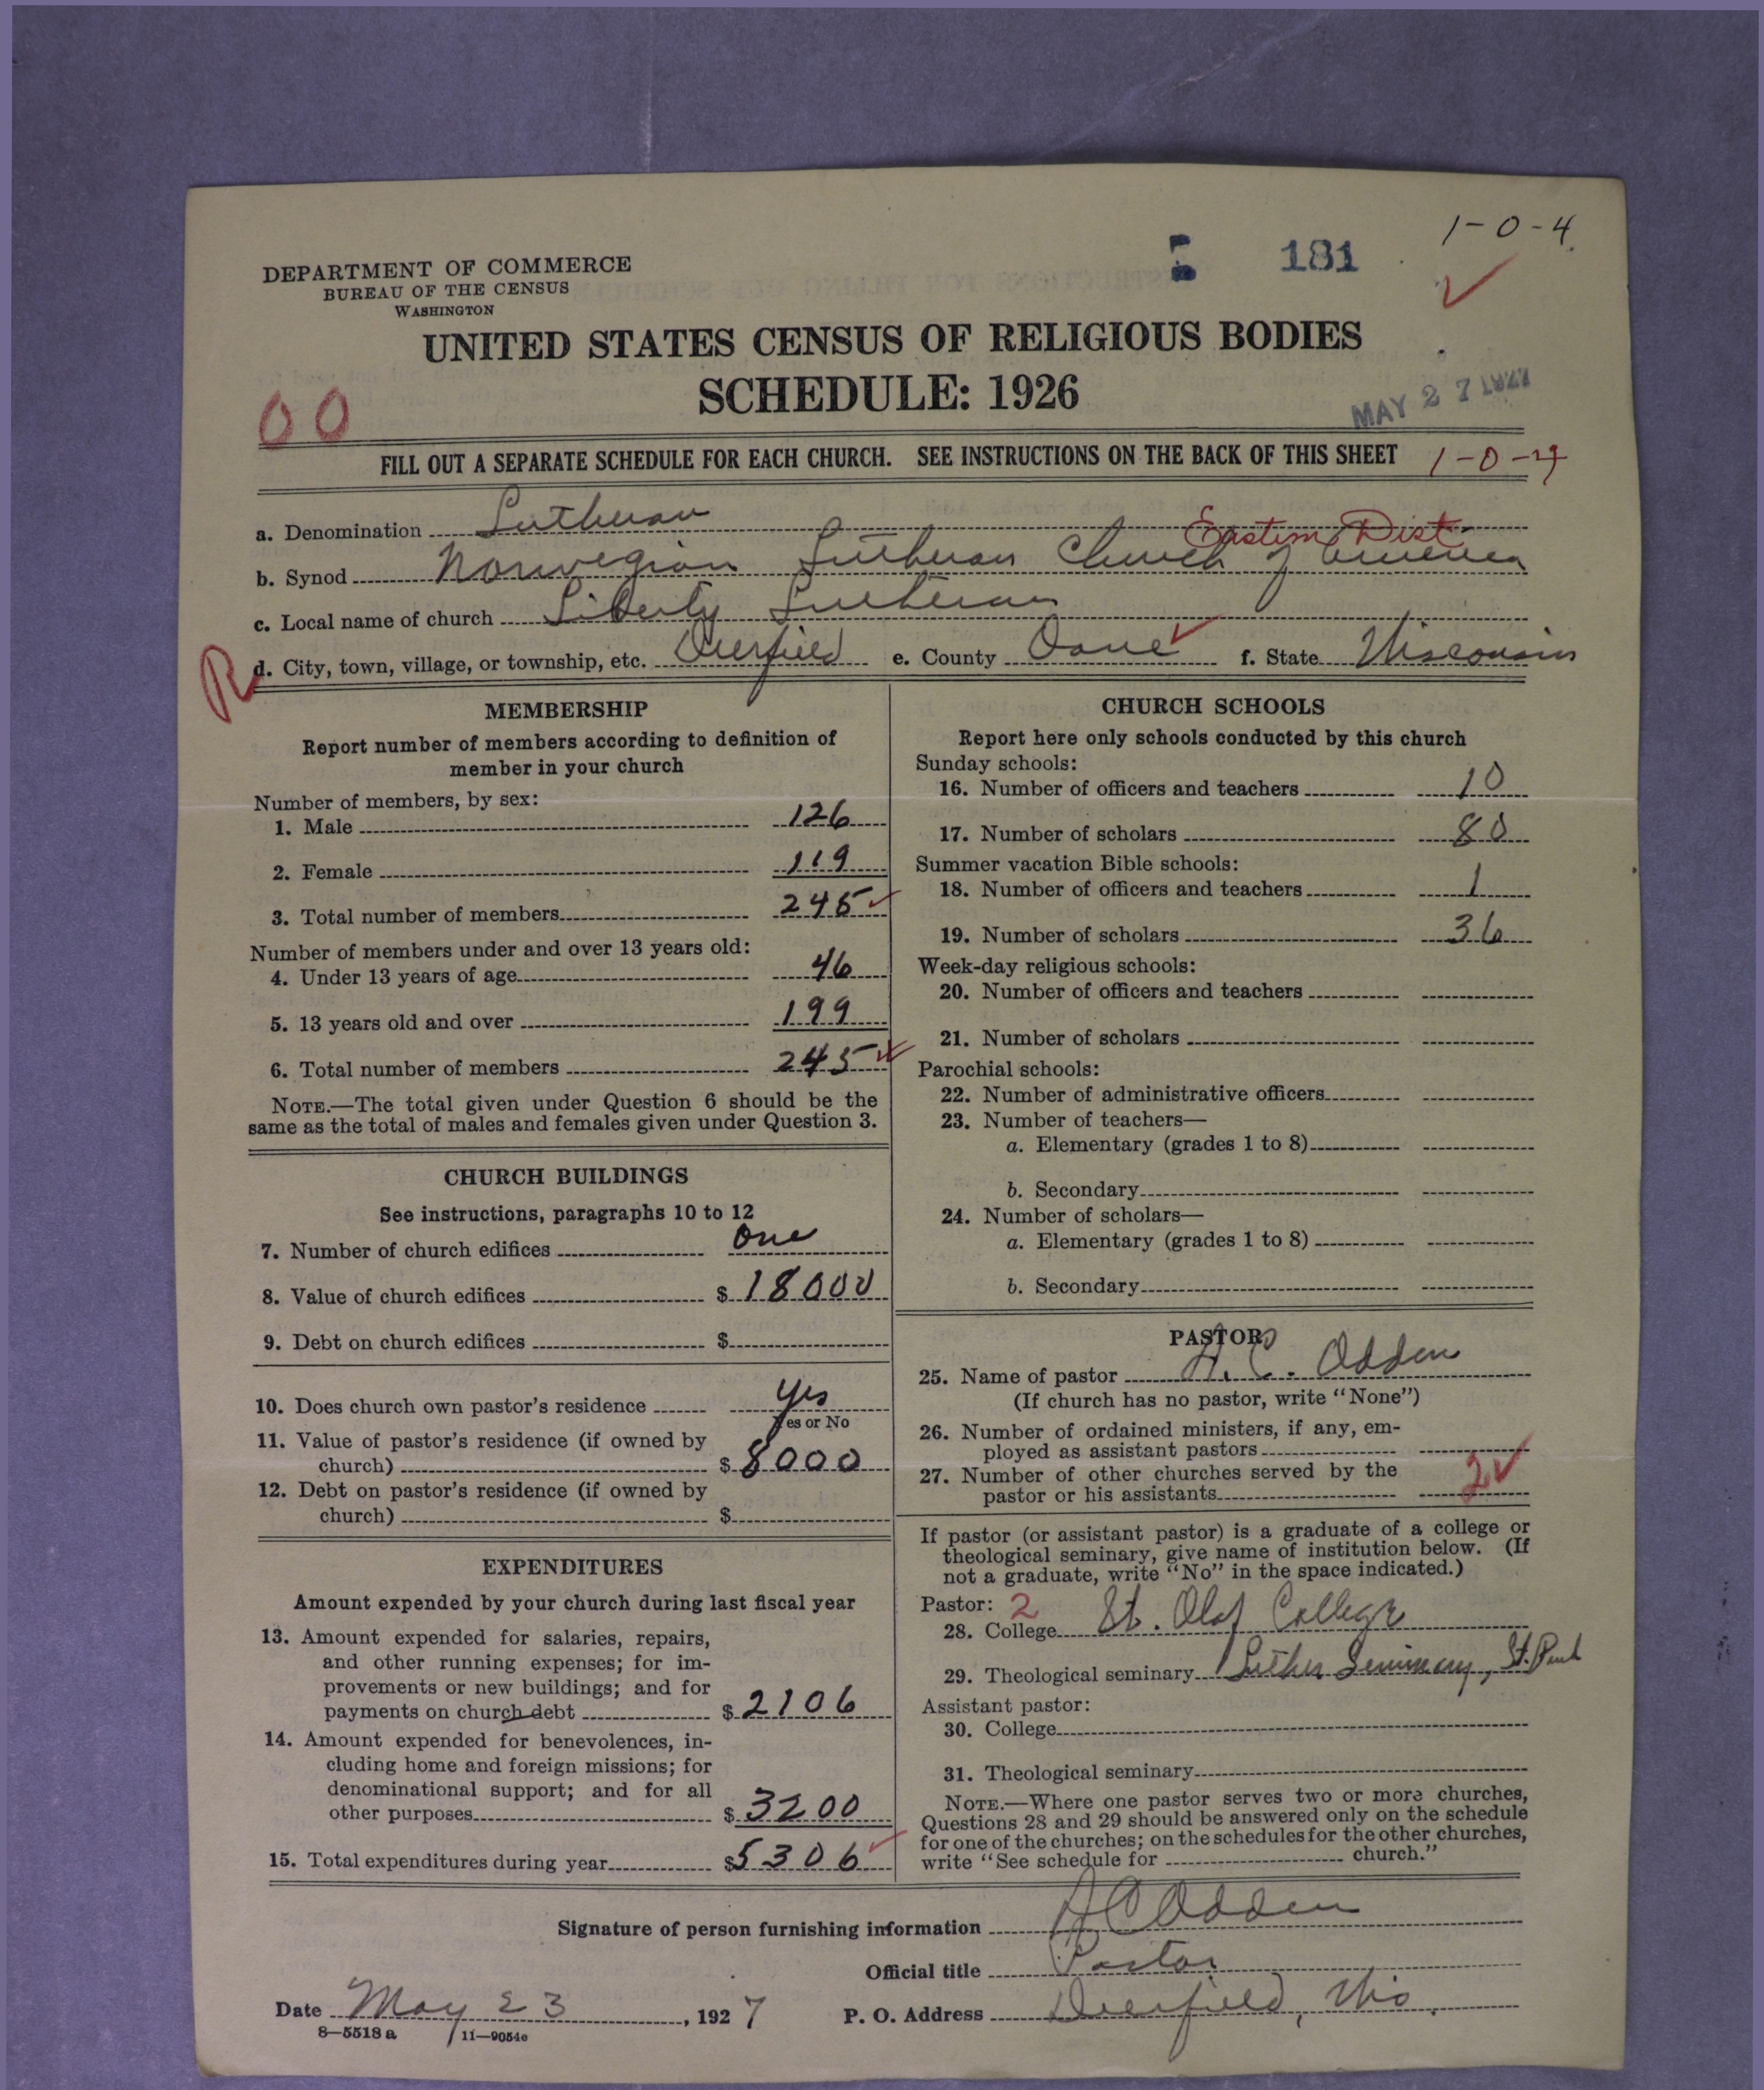 1-0-4
181
DEPARTMENT OF COMMERCE
BUREAU OF THE CENSUS
WASHINGTON
UNITED STATES CENSUS OF RELIGIOUS BODIES
SCHEDULE: 1926
MAY 27 1927
00
FILL OUT A SEPARATE SCHEDULE FOR EACH CHURCH. SEE INSTRUCTIONS ON THE BACK OF THIS SHEET
a. Denomination Lutheran
Eastern Dist.
b. Synod Norwegian Lutheran Church of America
c. Local name of church Liberty Lutheran
R d. City, town, village, or township, etc. Deerfield e. County Dane f. State Wisconsin
MEMBERSHIP
Report number of members according to definition of
member in your church
Number of members, by sex:
1. Male 126
2. Female 119
3. Total number of members 245
Number of members under and over 13 years old:
4. Under 13 years of age 46
5. 13 years old and over 199
6. Total number of members 245
NOTE.—The total given under Question 6 should be the
same as the total of males and females given under Question 3.
CHURCH BUILDINGS
See instructions, paragraphs 10 to 12
7. Number of church edifices one
8. Value of church edifices $ 18000
9. Debt on church edifices $
10. Does church own pastor's residence yes
Yes or No
11. Value of pastor's residence (if owned by
church) $ 8000
12. Debt on pastor's residence (if owned by
church) $
EXPENDITURES
Amount expended by your church during last fiscal year
13. Amount expended for salaries, repairs,
and other running expenses; for im-
provements or new buildings; and for
payments on church debt $ 2106
14. Amount expended for benevolences, in-
cluding home and foreign missions; for
denominational support; and for all
other purposes $ 3200
15. Total expenditures during year $ 5306
CHURCH SCHOOLS
Report here only schools conducted by this church
Sunday schools:
16. Number of officers and teachers 10
17. Number of scholars 80
Summer vacation Bible schools:
18. Number of officers and teachers 1
19. Number of scholars 36
Week-day religious schools:
20. Number of officers and teachers
21. Number of scholars
Parochial schools:
22. Number of administrative officers
23. Number of teachers—
a. Elementary (grades 1 to 8)
b. Secondary
24. Number of scholars—
a. Elementary (grades 1 to 8)
b. Secondary
PASTOR
25. Name of pastor A. C. Odden
(If church has no pastor, write "None")
26. Number of ordained ministers, if any, em-
ployed as assistant pastors
27. Number of other churches served by the
pastor or his assistants 2
If pastor (or assistant pastor) is a graduate of a college or
theological seminary, give name of institution below. (If
not a graduate, write "No" in the space indicated.)
Pastor: 2
28. College St. Olaf College
29. Theological seminary Luther Seminary, St. Paul
Assistant pastor:
30. College
31. Theological seminary
NOTE.—Where one pastor serves two or more churches,
Questions 28 and 29 should be answered only on the schedule
for one of the churches; on the schedules for the other churches,
write "See schedule for church."
Signature of person furnishing information A C Odden
Official title Pastor
Date May 23, 1927 P. O. Address Deerfield, Wis.
8—5518 a 11—9054c